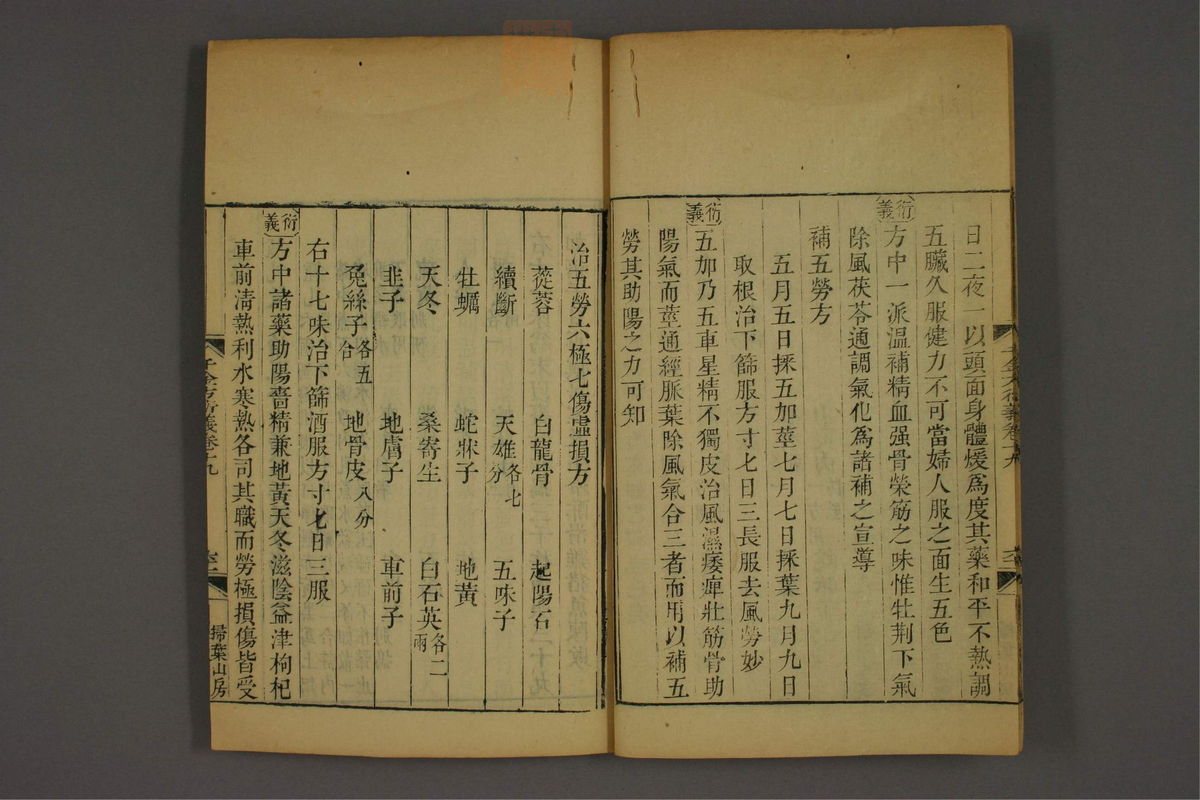 日二夜一以頭面身體煖爲度其藥和平不熱調
五臟久服健力不可當婦人服之面生五色
衍義
方中一派温補精血强骨榮筋之味惟牡荆下氣
除風茯苓通調氣化爲諸補之宣導
補五勞方
五月五日採五加莖七月七日採葉九月九日
取根治下篩服方寸匕日三長服去風勞妙
衍義
五加乃五車星精不獨皮治風濕痿痺壯筋骨助
陽氣而莖通經脈葉除風氣合三者而用以補五
勞其助陽之力可知
治五勞六極七傷虛損方
蓯蓉 白龍骨 起陽石
續斷 天雄各七分 五味子
牡蠣 蛇牀子 地黃
天冬 桑寄生 白石英各二兩
韭子 地膚子 車前子
兔絲子各五合 地骨皮八分
右十七味治下篩酒服方寸匕日三服
衍義
方中諸藥助陽嗇精兼地黃天冬滋陰益津枸杞
車前淸熱利水寒熱各司其職而勞極損傷皆受
千金方衍義卷十九
掃葉山房